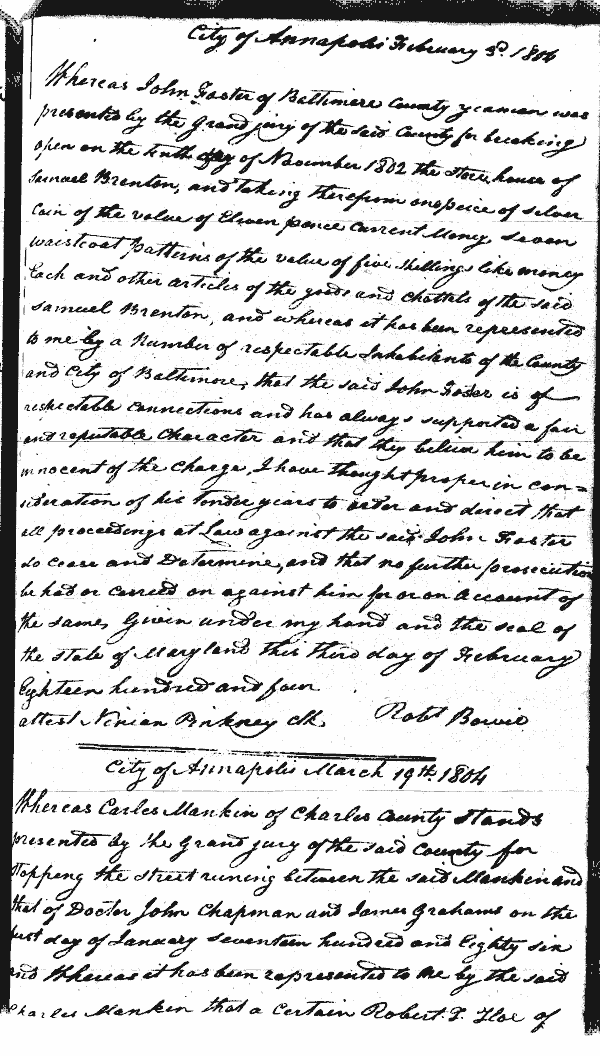 City of Annapolis February 3d. 1804
Whereas John Foster of Baltimore County yeaman was
presented by the Grand jury of the said County for breaking
open on the tenth day of November 1802 the store house of
Samuel Brenton, and taking therefrom one peice of silver
Coin of the value of Eleven pence Current Money seven
waistcoat patterns of the value of five shillings like money
Each and other articles of the goods and chattels of the said
Samuel Brenton, and whereas it has been represented
to me by a Number of respectable Inhabitants of the County
and City of Baltimore, that the said John Foster is of
respectable connections and has always supported a fair
and reputable Character and that they believe him to be
innocent of the Charge, I have thought proper in con=
sideration of his tender years to order and direct that
all proceedings at Law against the said John Foster
do cease and Determine, and that no further prosecution
be had or carried on against him for or on account of
the same, Given under my hand and the seal of
the State of Maryland this third day of February
Eighteen hundred and four
attest Ninian Pinkney Clk. Robt Bowie
City of Annapolis March 19th. 1804
Whereas Carles Mankin of Charles County stands
presented by the Grand jury of the said County for
stopping the street runing between the said Mankin and
that of Doctor John Chapman and James Grahams on the
first day of January seventeen hundred and Eighty six
and Whereas it has been represented to me by the said
Charles Mankin that a certain Robert T. Hoe of